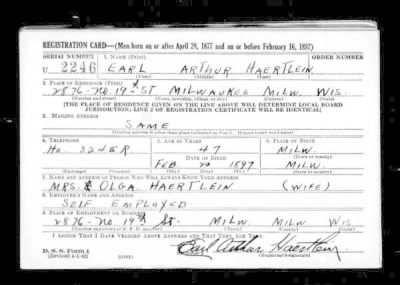 REGISTRATION CARD—(Men born on or after April 28, 1877 and on or before February 16, 1897)
SERIAL NUMBER 1. NAME (Print) ORDER NUMBER
U 2246 EARL ARTHUR HAERTLEIN
(First) (Middle) (Last)
2. PLACE OF RESIDENCE (Print)
2876-NO 19th ST MILWAUKEE MILW. WIS.
(Number and street) (Town, township, village, or city) (County) (State)
[THE PLACE OF RESIDENCE GIVEN ON THE LINE ABOVE WILL DETERMINE LOCAL BOARD
JURISDICTION; LINE 2 OF REGISTRATION CERTIFICATE WILL BE IDENTICAL]
3. MAILING ADDRESS
SAME
[Mailing address if other than place indicated on line 2. If same insert word same]
4. TELEPHONE 5. AGE IN YEARS 6. PLACE OF BIRTH
Ho. 3245R 47 MILW.
DATE OF BIRTH (Town or county)
FEB. 1897 MILW.
(Exchange) (Number) (Mo.) (Day) (Yr.) (State or country)
7. NAME AND ADDRESS OF PERSON WHO WILL ALWAYS KNOW YOUR ADDRESS
MRS. OLGA HAERTLEIN (WIFE)
8. EMPLOYER'S NAME AND ADDRESS
SELF EMPLOYED
9. PLACE OF EMPLOYMENT OR BUSINESS
2876-NO. 19th ST. MILW. MILW. WIS
(Number and street or R. F. D. number) (Town) (County) (State)
I AFFIRM THAT I HAVE VERIFIED ABOVE ANSWERS AND THAT THEY ARE TRUE.
D. S. S. Form 1 Earl Arthur Haertlein
(Revised 4-1-42) (over) (Registrant's signature)